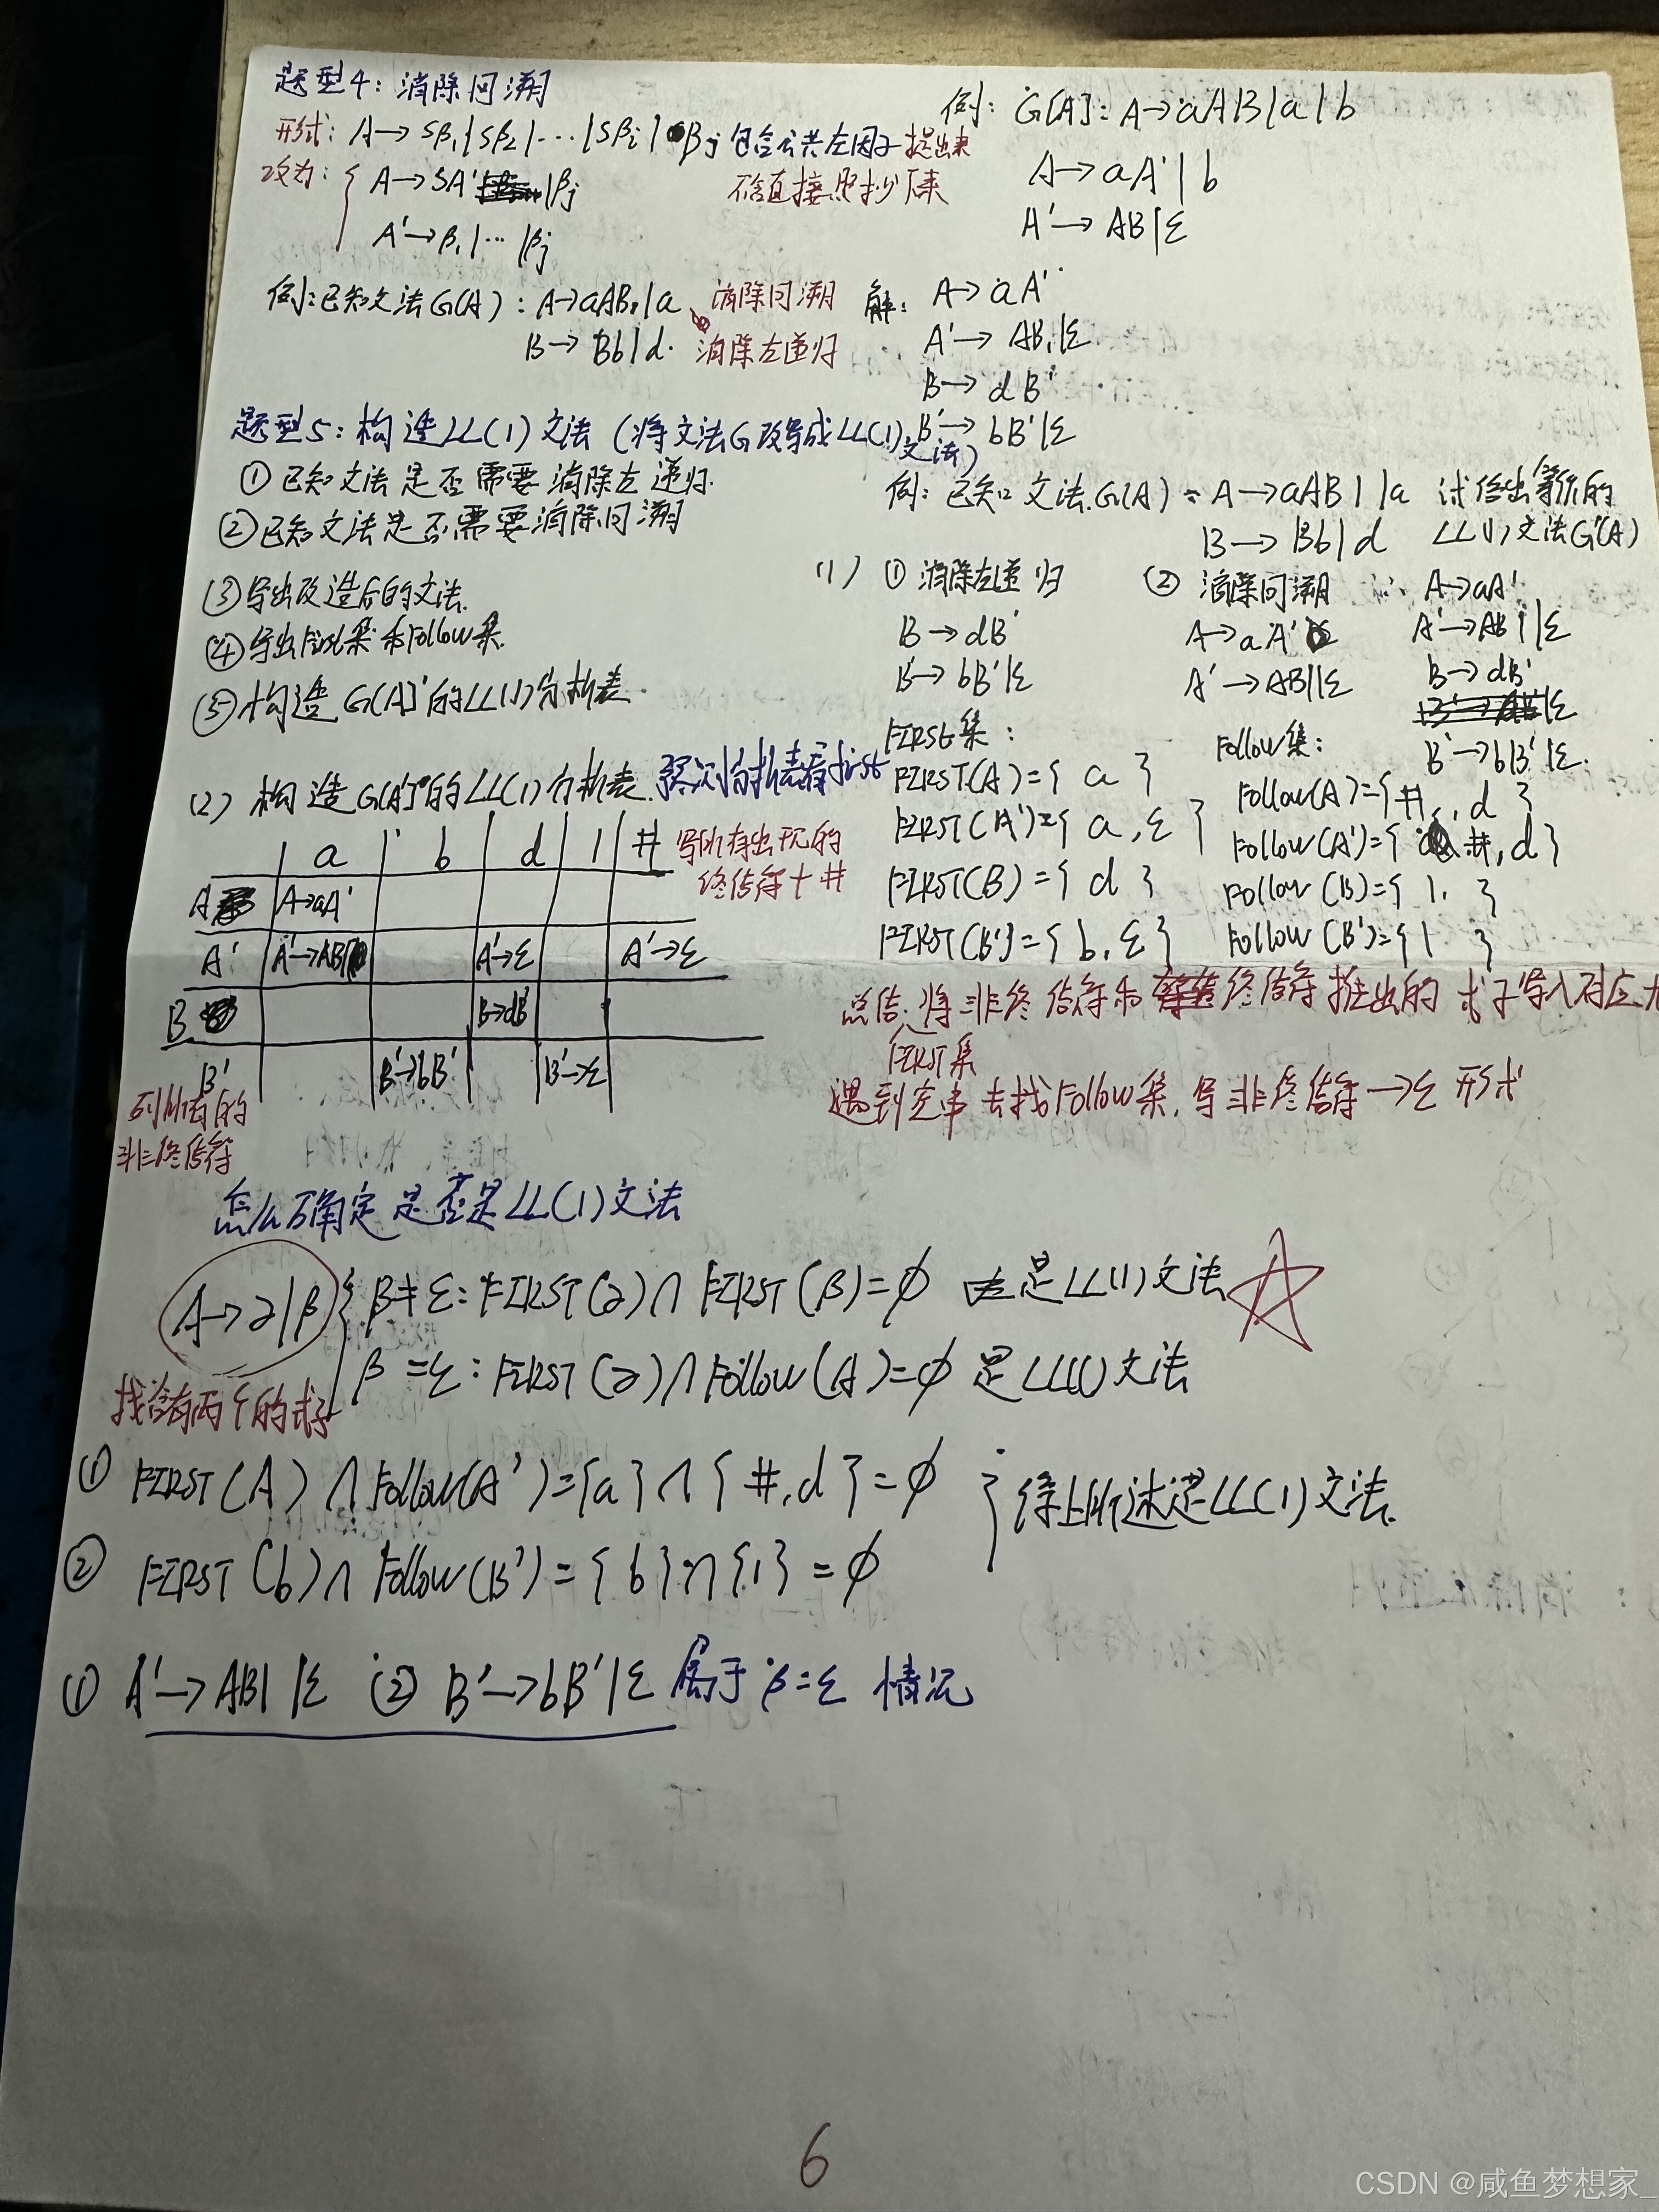 题型4：消除回溯
形式：A→Sβ₁|Sβ₂|…|Sβᵢ|βⱼ 包含公共左因子 提出来
改为：{ A→SA'|βⱼ 不含直接照抄下来
A'→β₁|…|βⱼ
例：G[A]：A→aAB|a|b
A→aA'|b
A'→AB|ε
例：已知文法G(A)：A→aAB₁|a 消除回溯
B→Bb|d. 消除左递归
解：A→aA'
A'→AB₁|ε
B→dB'
B'→bB'|ε
题型5：构造LL(1)文法（将文法G改写成LL(1)文法）
①已知文法是否需要消除左递归.
②已知文法是否需要消除回溯
③写出改造后的文法.
④写出First集和Follow集.
⑤构造G(A)'的LL(1)分析表.
例：已知文法G(A)：A→aAB1|a 试给出等价的
B→Bb|d LL(1)文法G'(A)
(1) ①消除左递归
B→dB'
B'→bB'|ε
②消除回溯
A→aA'
A'→AB1|ε
∴ A→aA'
A'→AB1|ε
B→dB'
B'→bB'|ε.
FIRST集：
FIRST(A)={ a }
FIRST(A')={ a, ε }
FIRST(B)={ d }
FIRST(B')={ b, ε }
Follow集：
Follow(A)={ #, d }
Follow(A')={ #, d }
Follow(B)={ 1, }
Follow(B')={ 1 }
(2) 构造G(A)'的LL(1)分析表.
a b d 1 # 写所有出现的
终结符+#
A A→aA'
A' A'→AB1 A'→ε A'→ε
B B→dB'
B' B'→bB' B'→ε
列所有的
非终结符
总结：将非终结符和终结符推出的式子写入对应
FIRST集
遇到空串去找Follow集，写非终结符→ε 形式
怎么确定是否是LL(1)文法
A→∂|β { β≠ε：FIRST(∂)∩FIRST(β)=∅ 是LL(1)文法
β=ε：FIRST(∂)∩Follow(A)=∅ 是LL(1)文法
找含有两个的式子
① FIRST(A)∩Follow(A')={a}∩{#,d}=∅
② FIRST(b)∩Follow(B')={b}∩{1}=∅
} 综上所述是LL(1)文法.
① A'→AB1|ε ② B'→bB'|ε 属于β=ε 情况
6
CSDN @咸鱼梦想家_